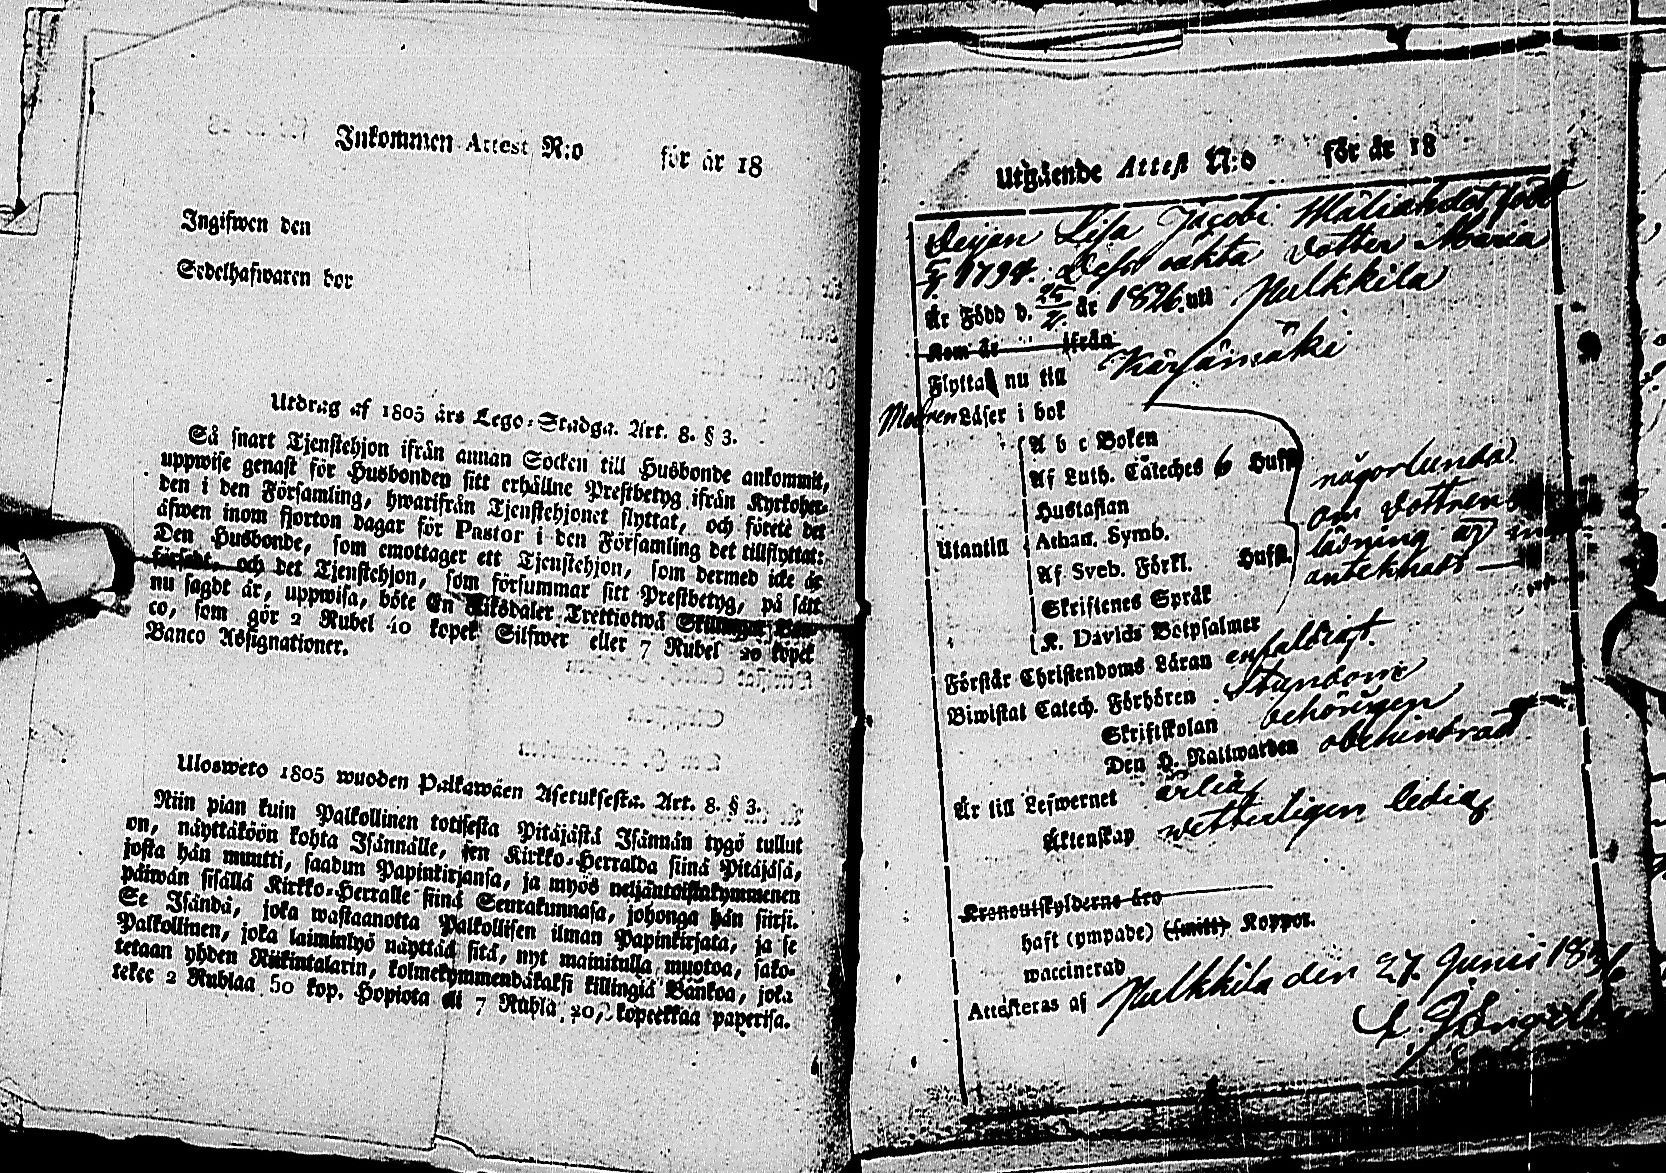 Inkommen Attest N:o för år 18
Ingifwen den
Sedelhafwaren bor
Utdrag af 1805 års Lego-Stadga. Art. 8. § 3.
Så snart Tjenstehjon ifrån annan Socken till Husbonde ankommit,
uppwise genast för Husbonden sitt erhållne Prestbetyg ifrån Kyrkoher-
den i den Församling, hwarifrån Tjenstehjonet flyttat, och förete det
äfwen inom fjorton dagar för Pastor i den Församling det tillflyttat:
Den Husbonde, som emottager ett Tjenstehjon, som dermed icke är
försedt, och det Tjenstehjon, som försummar sitt Prestbetyg, på sätt
nu sagdt är, uppwisa, böte En Riksdaler Trettiotwå Skillingar Ban-
co, som gör 2 Rubel 40 kopek Silfwer eller 7 Rubel 20 kopek
Banco Assignationer.
Ulosweto 1805 wuoden Palkawäen Asetuksesta. Art. 8. § 3.
Niin pian kuin Palkollinen toisesta Pitäjästä Isännän tygö tullut
on, näyttäköön kohta Isännälle, sen Kirkko-Herralda siinä Pitäjäsä,
josta hän muutti, saadun Papinkirjansa, ja myös neljäntoistakymmenen
päiwän sisällä Kirkko-Herralle siinä Seurakunnasa, johonga hän siirsi.
Se Isändä, joka wastaanotta Palkollisen ilman Papinkirjata, ja se
Palkollinen, joka laiminlyö näyttää sitä, nyt mainitulla muotoa, sako-
tetaan yhden Riikintalarin, kolmekymmendäkaksi killingiä Bankoa, joka
tekee 2 Rublaa 50 kop. Hopiota eli 7 Rubla 20, kopeekkaa paperisa.
Utgående Attest N:o för år 18
Pigan Lisa Jacobi Mäliahdot född
1794. Dess oäkta dotter Maria
Är Född d. 25/2 år 1826 uti Pulkkila
Kom år ifrån
Flyttar nu till Kärsämäki
Modren Läser i bok
A b c Boken
Af Luth. Cateches 6 Hufst.
Hustaflan
Utantill Athan. Symb.
Af Sveb. Förkl. Hufst.
Skriftenes Språk
K. Davids Botpsalmer
någorlunda.
om dottrens
läsning ej
antekknadt
Förstår Christendoms Läran enfaldigt.
Biwistat Catech. Förhören stundom
Skriftskolan behörigen
Den H. Nattwarden obehindrad
Är till Lefwernet ärlig
Äktenskap wetterligen ledig
Kronoutskylderne äro
haft (ympade) (smitt) Koppor.
waccinerad
Attesteras af Pulkkila den 27. Junii 1836